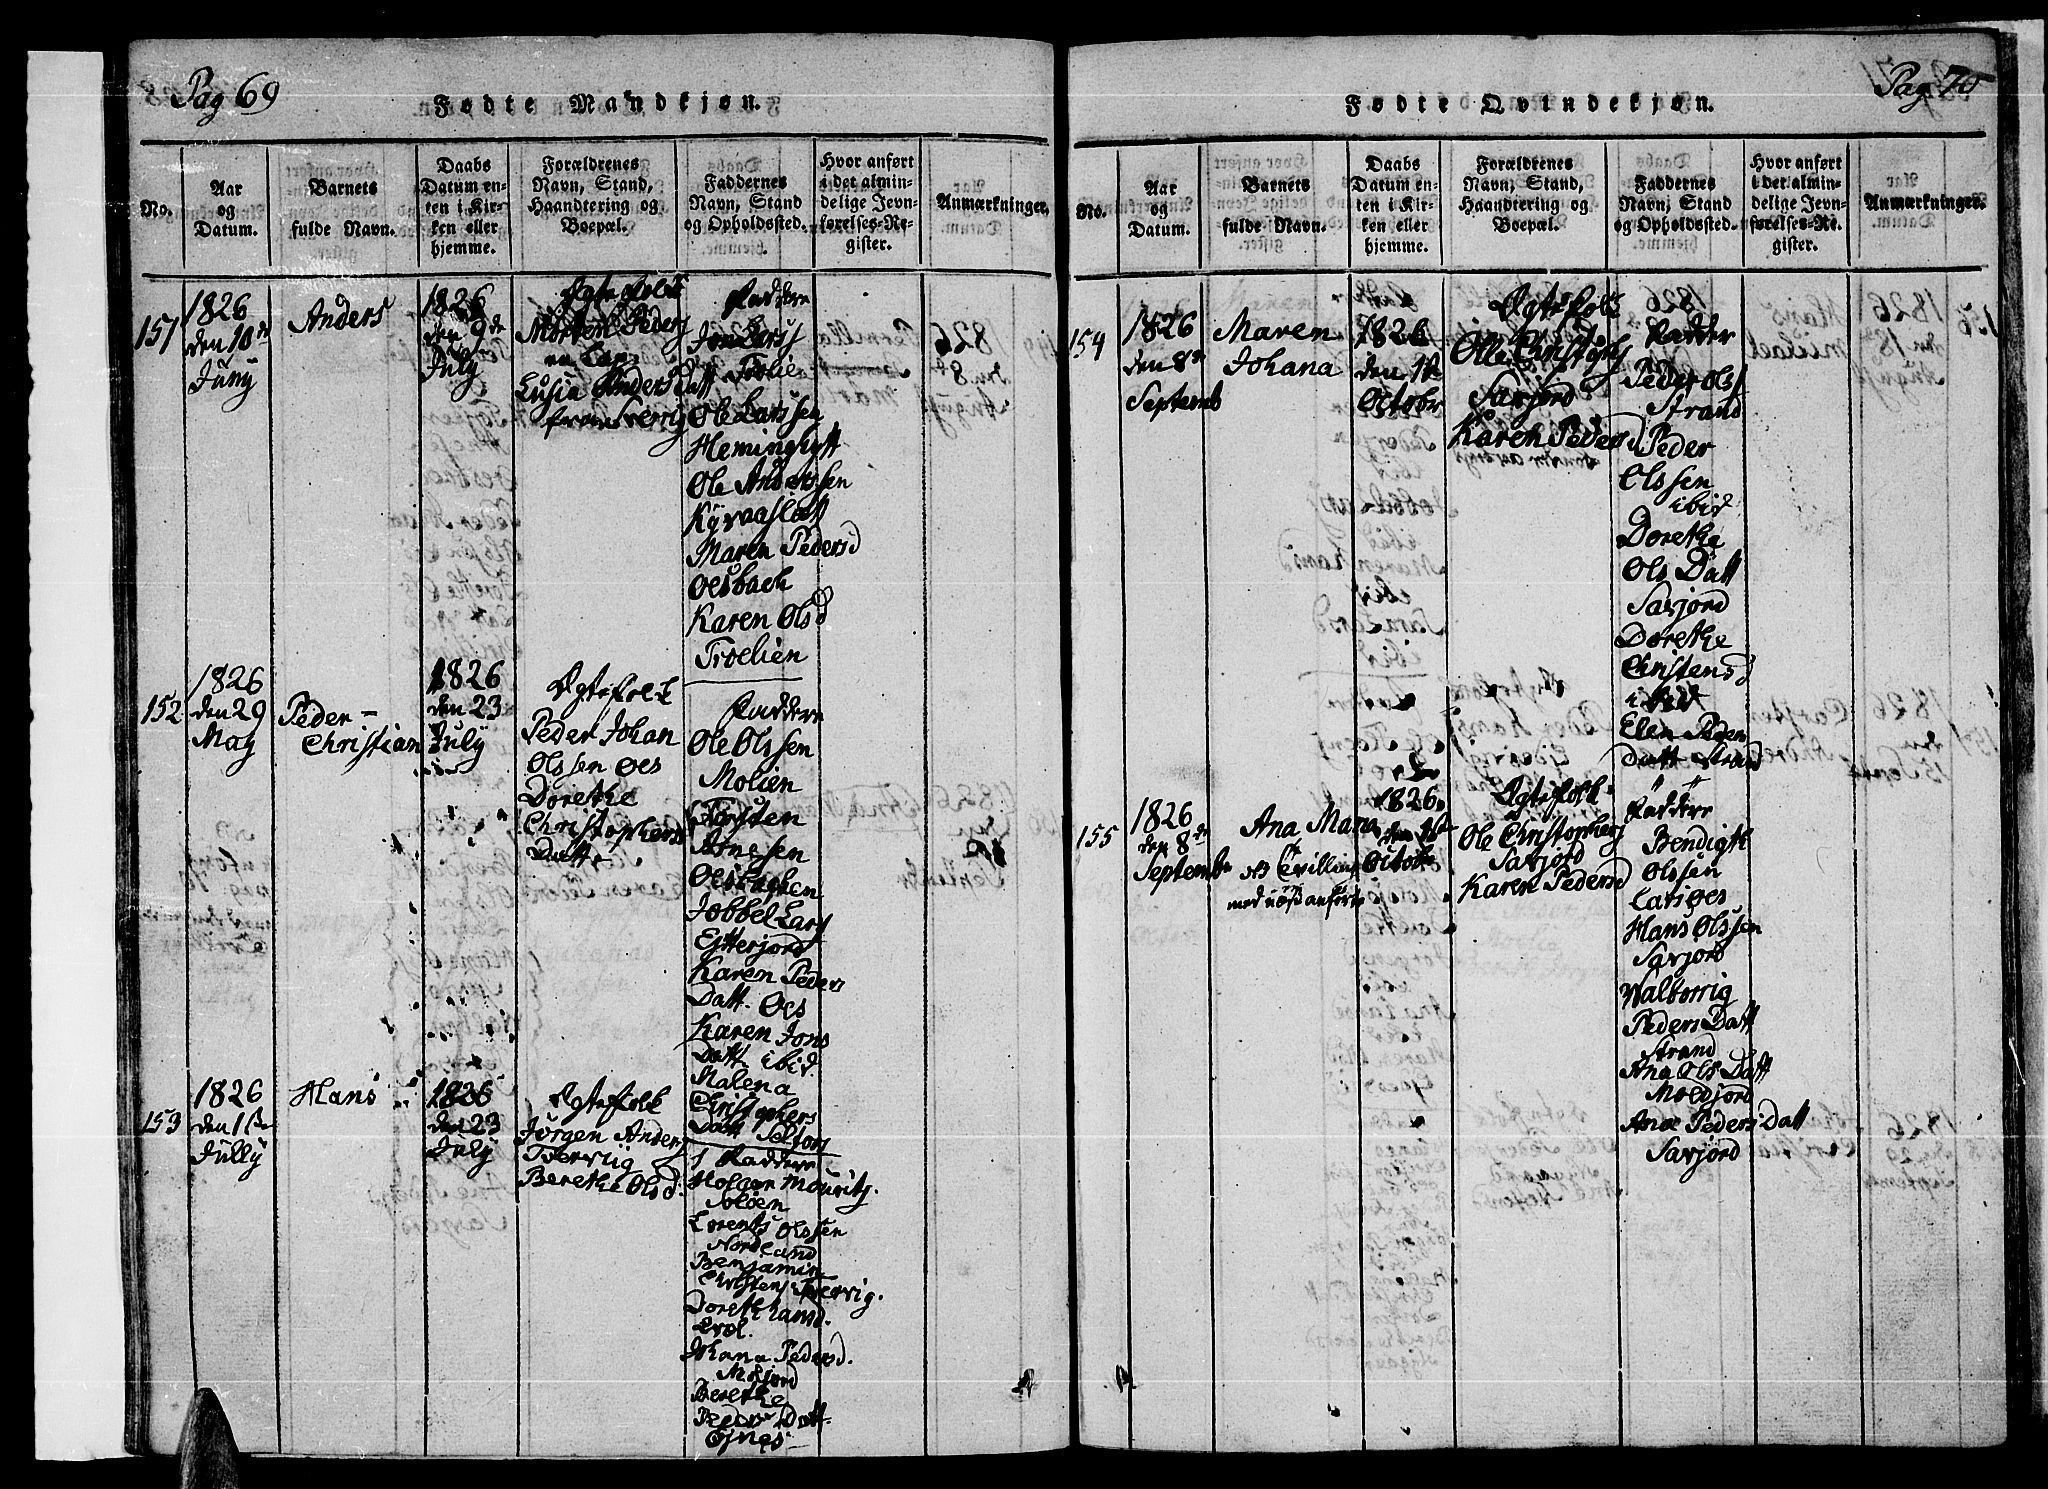 Pag 69
Fødte Mandkjøn.
No.
Aar
og
Datum.
Barnets
fulde Navn.
Daabs
Datum en-
ten i Kir-
ken eller
hjemme.
Forældrenes
Navn, Stand,
Haandtering og
Boepæl.
Faddernes
Navn, Stand
og Opholdssted.
Hvor anført
i det almin-
delige Jevn-
førelses-Re-
gister.
Anmærkninger.
151
1826
den 10de
Juny
Anders
1826
den 9de
July
Ægtefolk
Morten Peders
Lusia Anders Datt
fra Sverrig
Faddere
Jon Larss
Troelien
Ole Larssen
Heminghytt
Ole Anderssen
Maren Pedersd
Oesbach
Karen Olsd
Troelien
152
1826
den 29
May
Peder-
Christian
1826
den 23
July
Ægtefolk
Peder Johan
Olssen Oes
Dorethe
Christophers
Datt
Faddere
Ole Olssen
Molien
Torsten
Arnesen
Oesbachen
Jobbel Lars
Esterjord
Karen Peders
Datt. Oes
Karen Jons
Datt ibid.
Malena
Christophers
Datt Setfors
153
1826
den 1ste
Jully
Hans
1826
den 23
July
Ægtefolk
Jørgen Anders
Tvervig
Berethe Olsd.
Faddere
Holger Mouritz.
Soløen
Lorents Olssen
Nordland
Benjamin
Christens Tvervig.
Doreth Hansd.
Evol.
Johana Pedersd.
Misjord
Berethe
Peders Datt
Esnes
Pag. 70
Fødte Qvindekjøn.
No.
Aar
og
Datum.
Barnets
fulde Navn.
Daabs
Datum en-
ten i Kir-
ken eller
hjemme.
Forældrenes
Navn, Stand,
Haandtering og
Boepæl.
Faddernes
Navn, Stand
og Opholdssted.
Hvor anført
i det almin-
delige Jevn-
førelses-Re-
gister.
Anmærkninger.
154
1826
den 8de
Septemb
Maren
Johana
1826
den 1st
Octobr
Ægtefolk
Olle Christophs
Saxjord
Karen Pedersd
Fadder
Peder Olss
Strand
Peder
Olssen
ibid
Dorethe
Ols Datt
Saxjord
Dorethe
Christensd
ibid
Elen Peders
Datt Strand
155
1826
den 8de
Septembr
Ana Maria
NB Tvilling
med nøst anførte
1826
den 1ste
Octobr
Ægtefolk
Ole Christophers
Saxjord
Karen Pedersd
Faddere
Bendigth
Olssen
Hans Olssen
Saxjord
Walborrig
Peders Datt
Strand
Ana Ols Datt
Moldjord
Ana Peders Datt
Saxjord